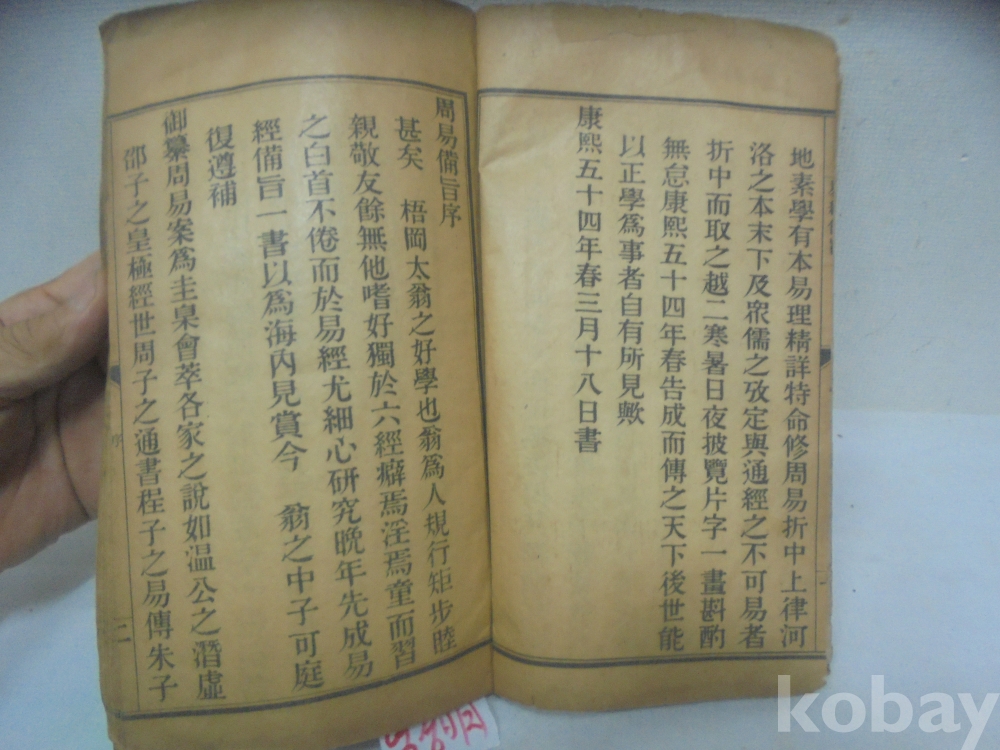 地素學有本易理精詳特命修周易折中上律河
洛之本末下及眾儒之攷定與通經之不可易者
折中而取之越二寒暑日夜披覽片字一畫斟酌
無怠康熙五十四年春告成而傳之天下後世能
以正學為事者自有所見歟
康熙五十四年春三月十八日書
周易備旨序
甚矣 梧岡太翁之好學也翁為人規行矩步睦
親敬友餘無他嗜好獨於六經癖焉淫焉童而習
之白首不倦而於易經尤細心研究晚年先成易
經備旨一書以為海內見賞今 翁之中子可庭
復遵補
御纂周易案為圭臬會萃各家之說如温公之潛虛
邵子之皇極經世周子之通書程子之易傳朱子
序
二
kobay